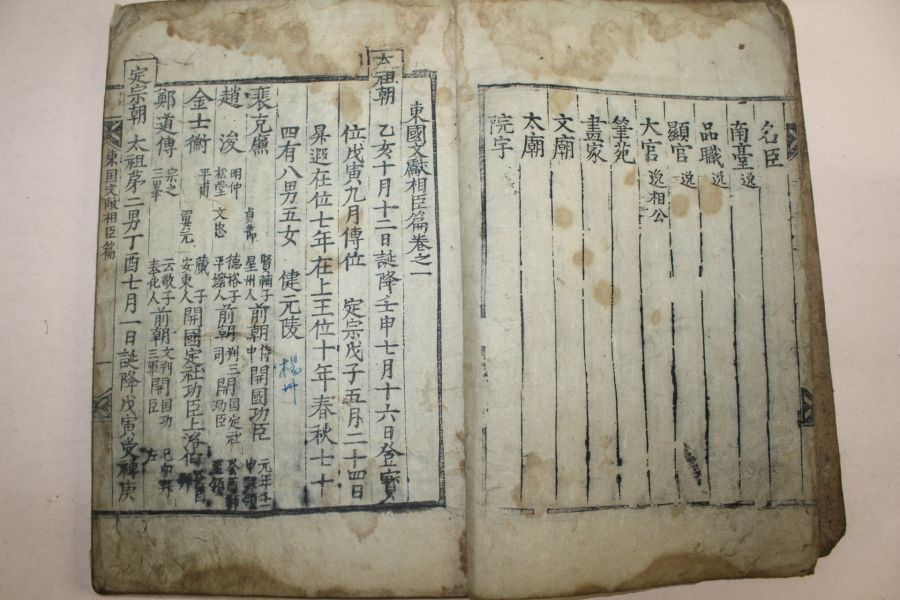 名臣
南臺 逸
品職 逸
顯官 逸
大官 逸相公
筆苑
畫家
文廟
太廟
院宇
東國文獻相臣篇卷之一
太祖朝 乙亥十月十二日誕降壬申七月十六日登寶
位戊寅九月傳位 定宗戊子五月二十四日
昇遐在位七年在上王位十年春秋七十
四有八男五女 健元陵 楊州
裴克廉 貞節 星州人 賢輔子 前朝 侍中 開國功臣 元年
趙浚 明仲 松堂 文忠 平壤人 德裕子 前朝 判三司 開國定社功臣
金士衡 平甫 翼元 安東人 蕆子 開國定社功臣上洛伯
鄭道傳 宗之 三峯 奉化人 云敬子 前朝 文判三軍 開國功臣 左
定宗朝 太祖第二男丁酉七月一日誕降戊寅受禪庚
東国文献相臣篇 一